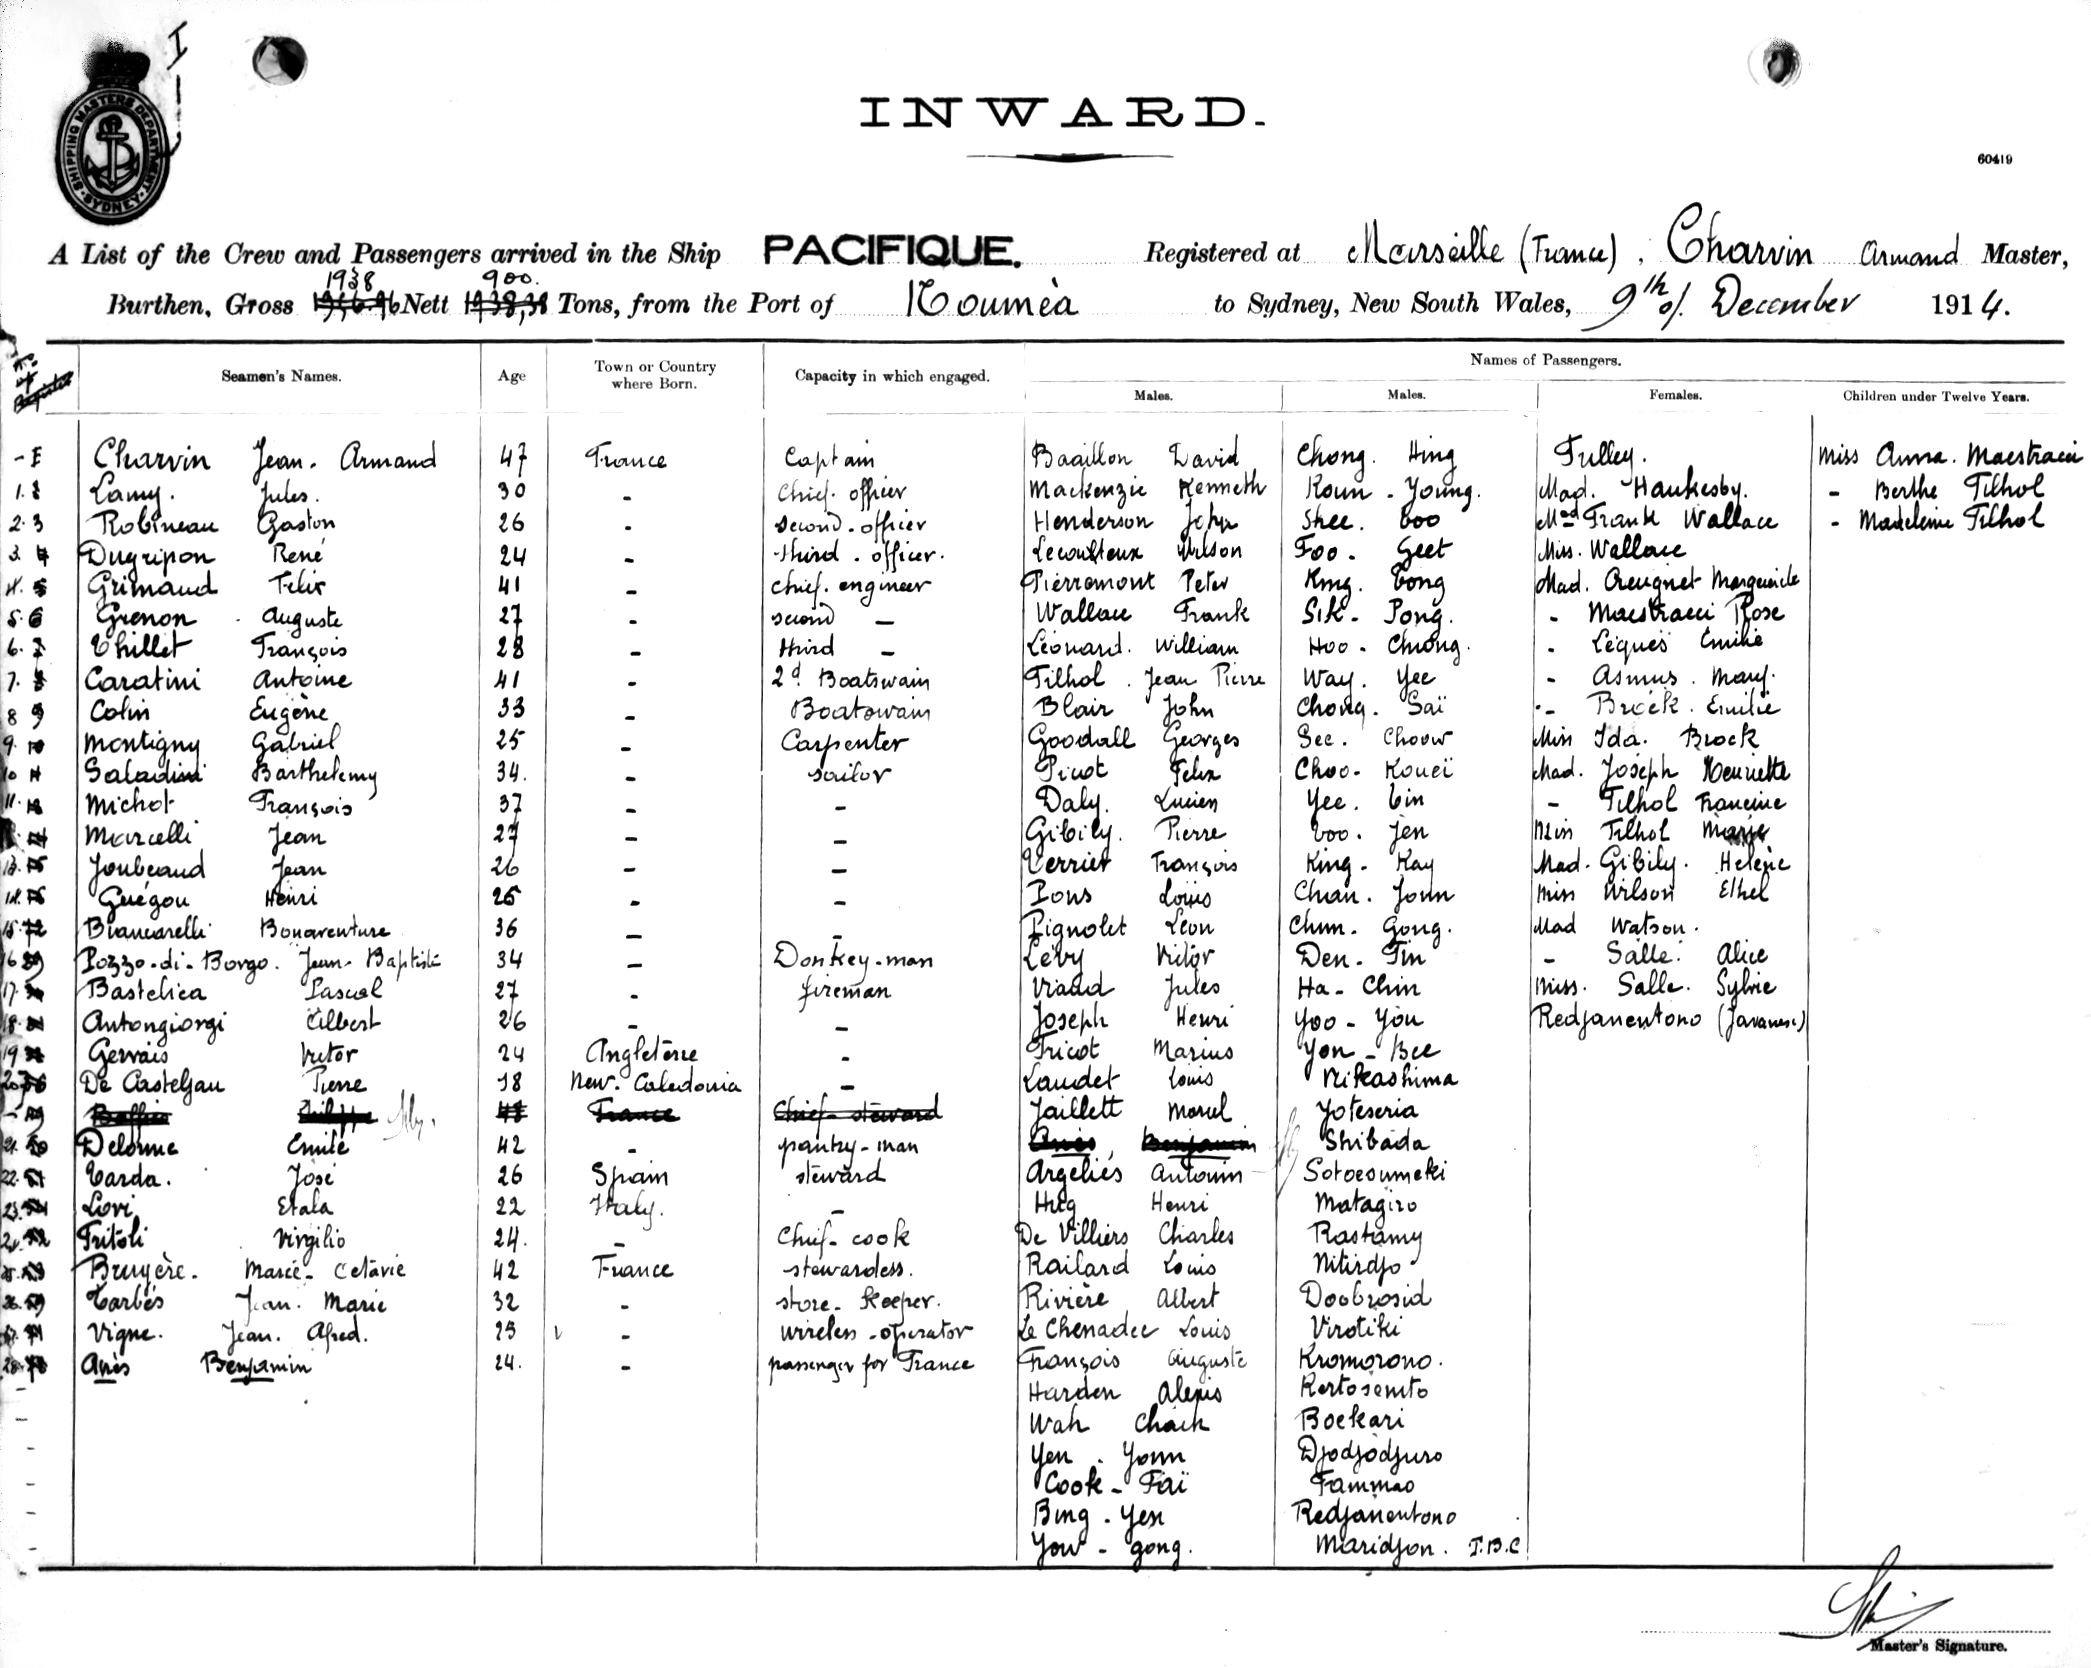 I
SHIPPING MASTERS DEPARTMENT
SYDNEY
INWARD.
60419
A List of the Crew and Passengers arrived in the Ship PACIFIQUE. Registered at Marseille (France), Charvin Armand Master,
1938 900.
Burthen, Gross Nett 1938,38 Tons, from the Port of Nouméa to Sydney, New South Wales, 9th of December 1914.
Seamen's Names. Age Town or Country where Born. Capacity in which engaged. Names of Passengers.
Males. Males. Females. Children under Twelve Years.
Charvin Jean. Armand 47 France Captain Baaillon David Chong. Hing Tulley. Miss Anna. Maestracci
1. Lamy. Jules. 30 - Chief. officer Mackenzie Kenneth Koun - Young. Mad. Haukesby. - Berthe Tilhol
2. 3 Robineau Gaston 26 - second. officer Henderson John Shee. Coo Mad Frank Wallace - Madeleine Tilhol
3. 4 Dugripon René 24 - third. officer. Lecoulteux Wilson Foo. Geet Miss. Wallace
4. 5 Grimaud Felix 41 - chief. engineer Pierremont Peter King. Cong Mad. Creugnet Marguerite
5. 6 Grenon Auguste 27 - second - Wallace Frank Sik. Pong. - Maestracci Rose
6. 7 Thillet François 28 - third - Léonard. William Hoo - Chiong. - Lèques Emilie
7. Caratini Antoine 41 - 2d Boatswain Tilhol. Jean Pierre Way. Yee - Asmus. Mary.
8 9 Colin Eugène 33 - Boatswain Blair John Chong. Saï - Brock. Emilie
9. 10 Montigny Gabriel 25 - Carpenter Goodall Georges See. Choow Miss Ida. Brock
10 11 Saladini Barthelemy 34. - sailor Picot Felix Choo - Koueï Mad. Joseph Henriette
11. Michot François 37 - - Daly. Lucien Yee. Cin - Tilhol Francine
Marcelli Jean 27 - - Gibily. Pierre Coo. Jen Miss Tilhol Marie
13. Joubeaud Jean 26 - - Verrier François King - Kay Mad. Gibily. Helène
14. Guégou Henri 25 - - Pons Louis Chan. Joun Miss Wilson Ethel
15 Biancarelli Bonaventure 36 - - Pignolet Léon Chun. Gong. Mad Watson.
16 Pozzo-di-Borgo. Jean-Baptiste 34 - Donkey-man Levy Victor Den - Tin - Salle. Alice
17. Bastelica Pascal 27 - fireman Viaud Jules Ha - Chin Miss. Salle. Sylvie
18. Antongiorgi Albert 26 - - Joseph Henri Yoo - You Redjanentono (Javanese)
19 Gervais Victor 24 Angleterre - Tricot Marius Yon - Bee
20 De Casteljau Pierre 18 New. Caledonia - Laudet Louis Nikashima
Baffin Philippe 41 France Chief-steward Jaillett Marcel Yoteseria
21. Delorme Emile 42 - pantry-man Anès Benjamin Shibada
22. Tarda. José 26 Spain steward Argeliès Antonin Sotoesumeki
23. Lovi Etala 22 Italy. - Hug Henri Matagiro
24. Tritoli Virgilio 24. - Chief-cook De Villiers Charles Rastamy
25. Bruyère. Marie-Octavie 42 France stewardess. Railard Louis Nitirdjo
26. Tarbés Jean. Marie 32 - store-keeper. Rivière Albert Doobrosid
27. Vigne. Jean. Alfred. 25 - wireless-operator Le Chenadec Louis Virotiki
28. Anès Benjamin 24. - passenger for France François Auguste Kromorono.
Harden Alexis Kertosemto
Wah Chack Boekari
Yen. Yonn Djodjodjuro
Cook - Faï Tammao
Bing - Yen Redjanentono
You - gong. Maridjon. T.B.C
Master's Signature.